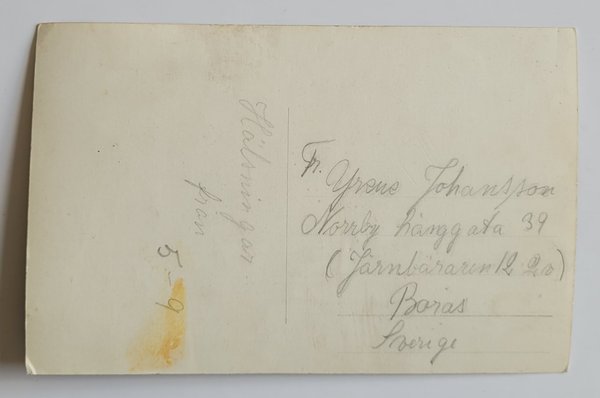 Hälsningar
från
5-9
Fr. Yrene Johansson
Norrby långgata 39
(Järnbäraren 12 2v)
Borås
Sverige